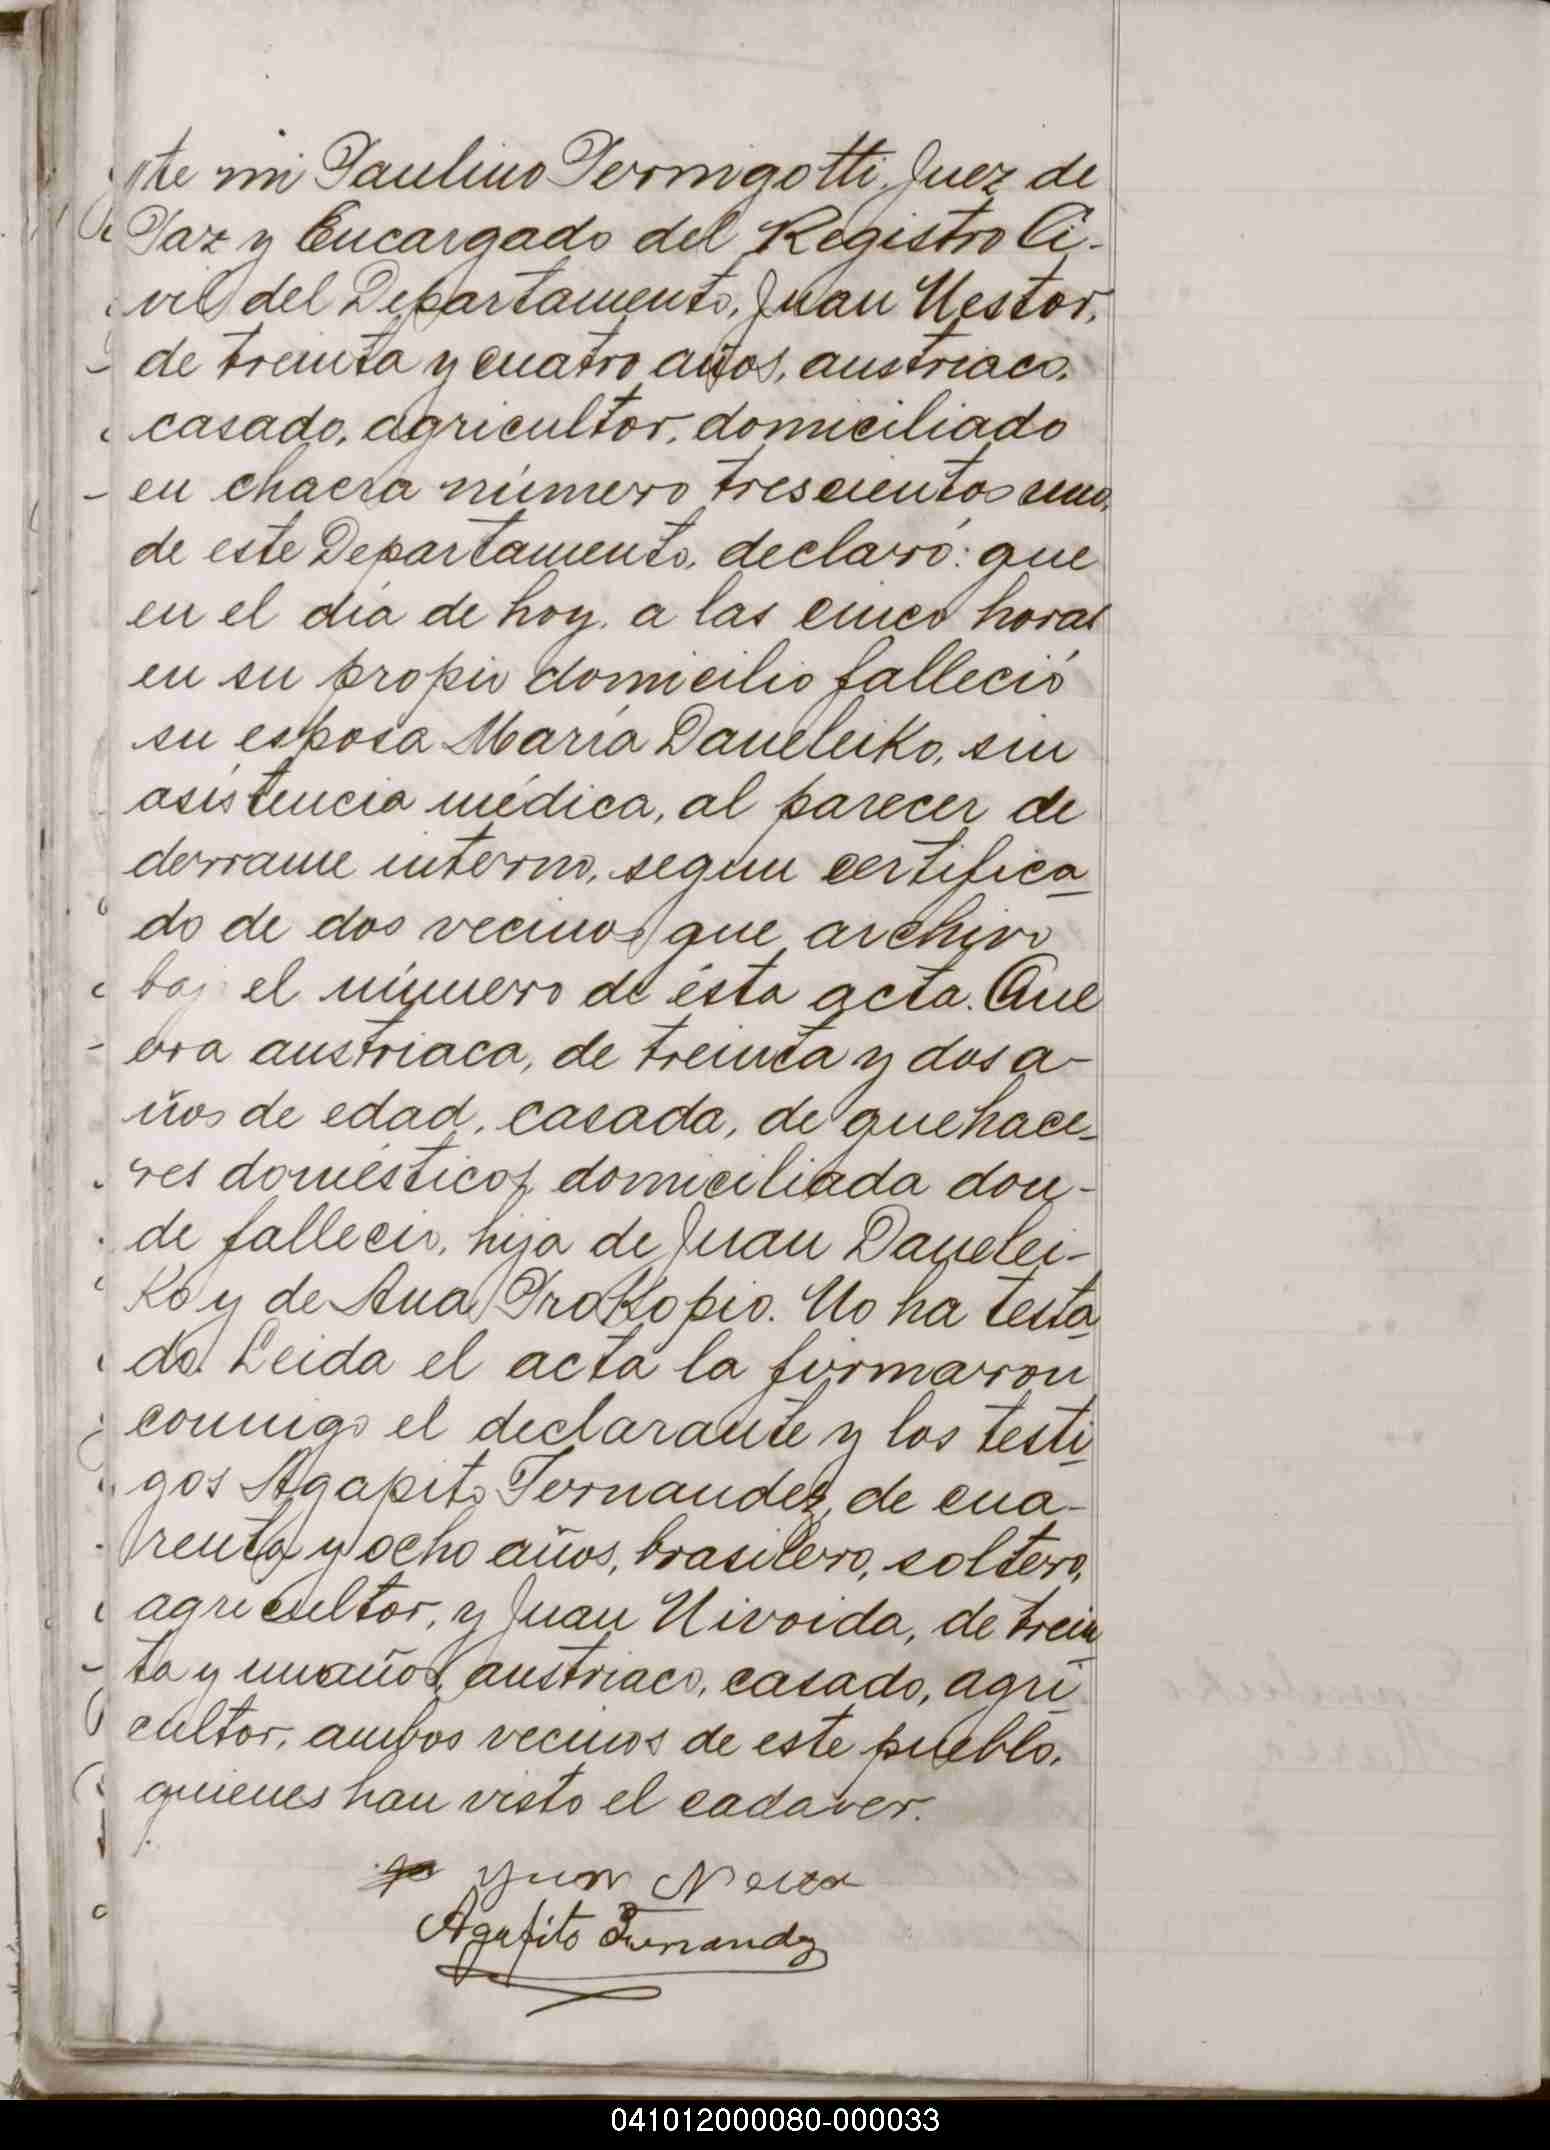 te mi Paulino Pernigotti, Juez de
Paz y Encargado del Registro Ci-
vil del Departamento, Juan Nestor,
de treinta y cuatro años, austriaco,
casado, agricultor, domiciliado
en chacra número trescientos uno,
de este Departamento, declaró: que
en el día de hoy, a las cinco horas
en su propio domicilio falleció
su esposa María Daneleiko, sin
asistencia médica, al parecer de
derrame interno, segun certifica-
do de dos vecinos que archivo
bajo el número de ésta acta. Que
era austriaca, de treinta y dos a-
ños de edad, casada, de quehace-
res domésticos, domiciliada don-
de fallecio, hija de Juan Danelei-
ko y de Ana Prokopio. No ha testa-
do. Leida el acta la firmaron
conmigo el declarante y los testi-
gos Agapito Fernandez, de cua-
renta y ocho años, brasilero, soltero,
agricultor, y Juan Nivoida, de trein-
ta y un años, austriaco, casado, agri-
cultor, ambos vecinos de este pueblo,
quienes han visto el cadaver.
Agapito Fernandez
041012000080-000033